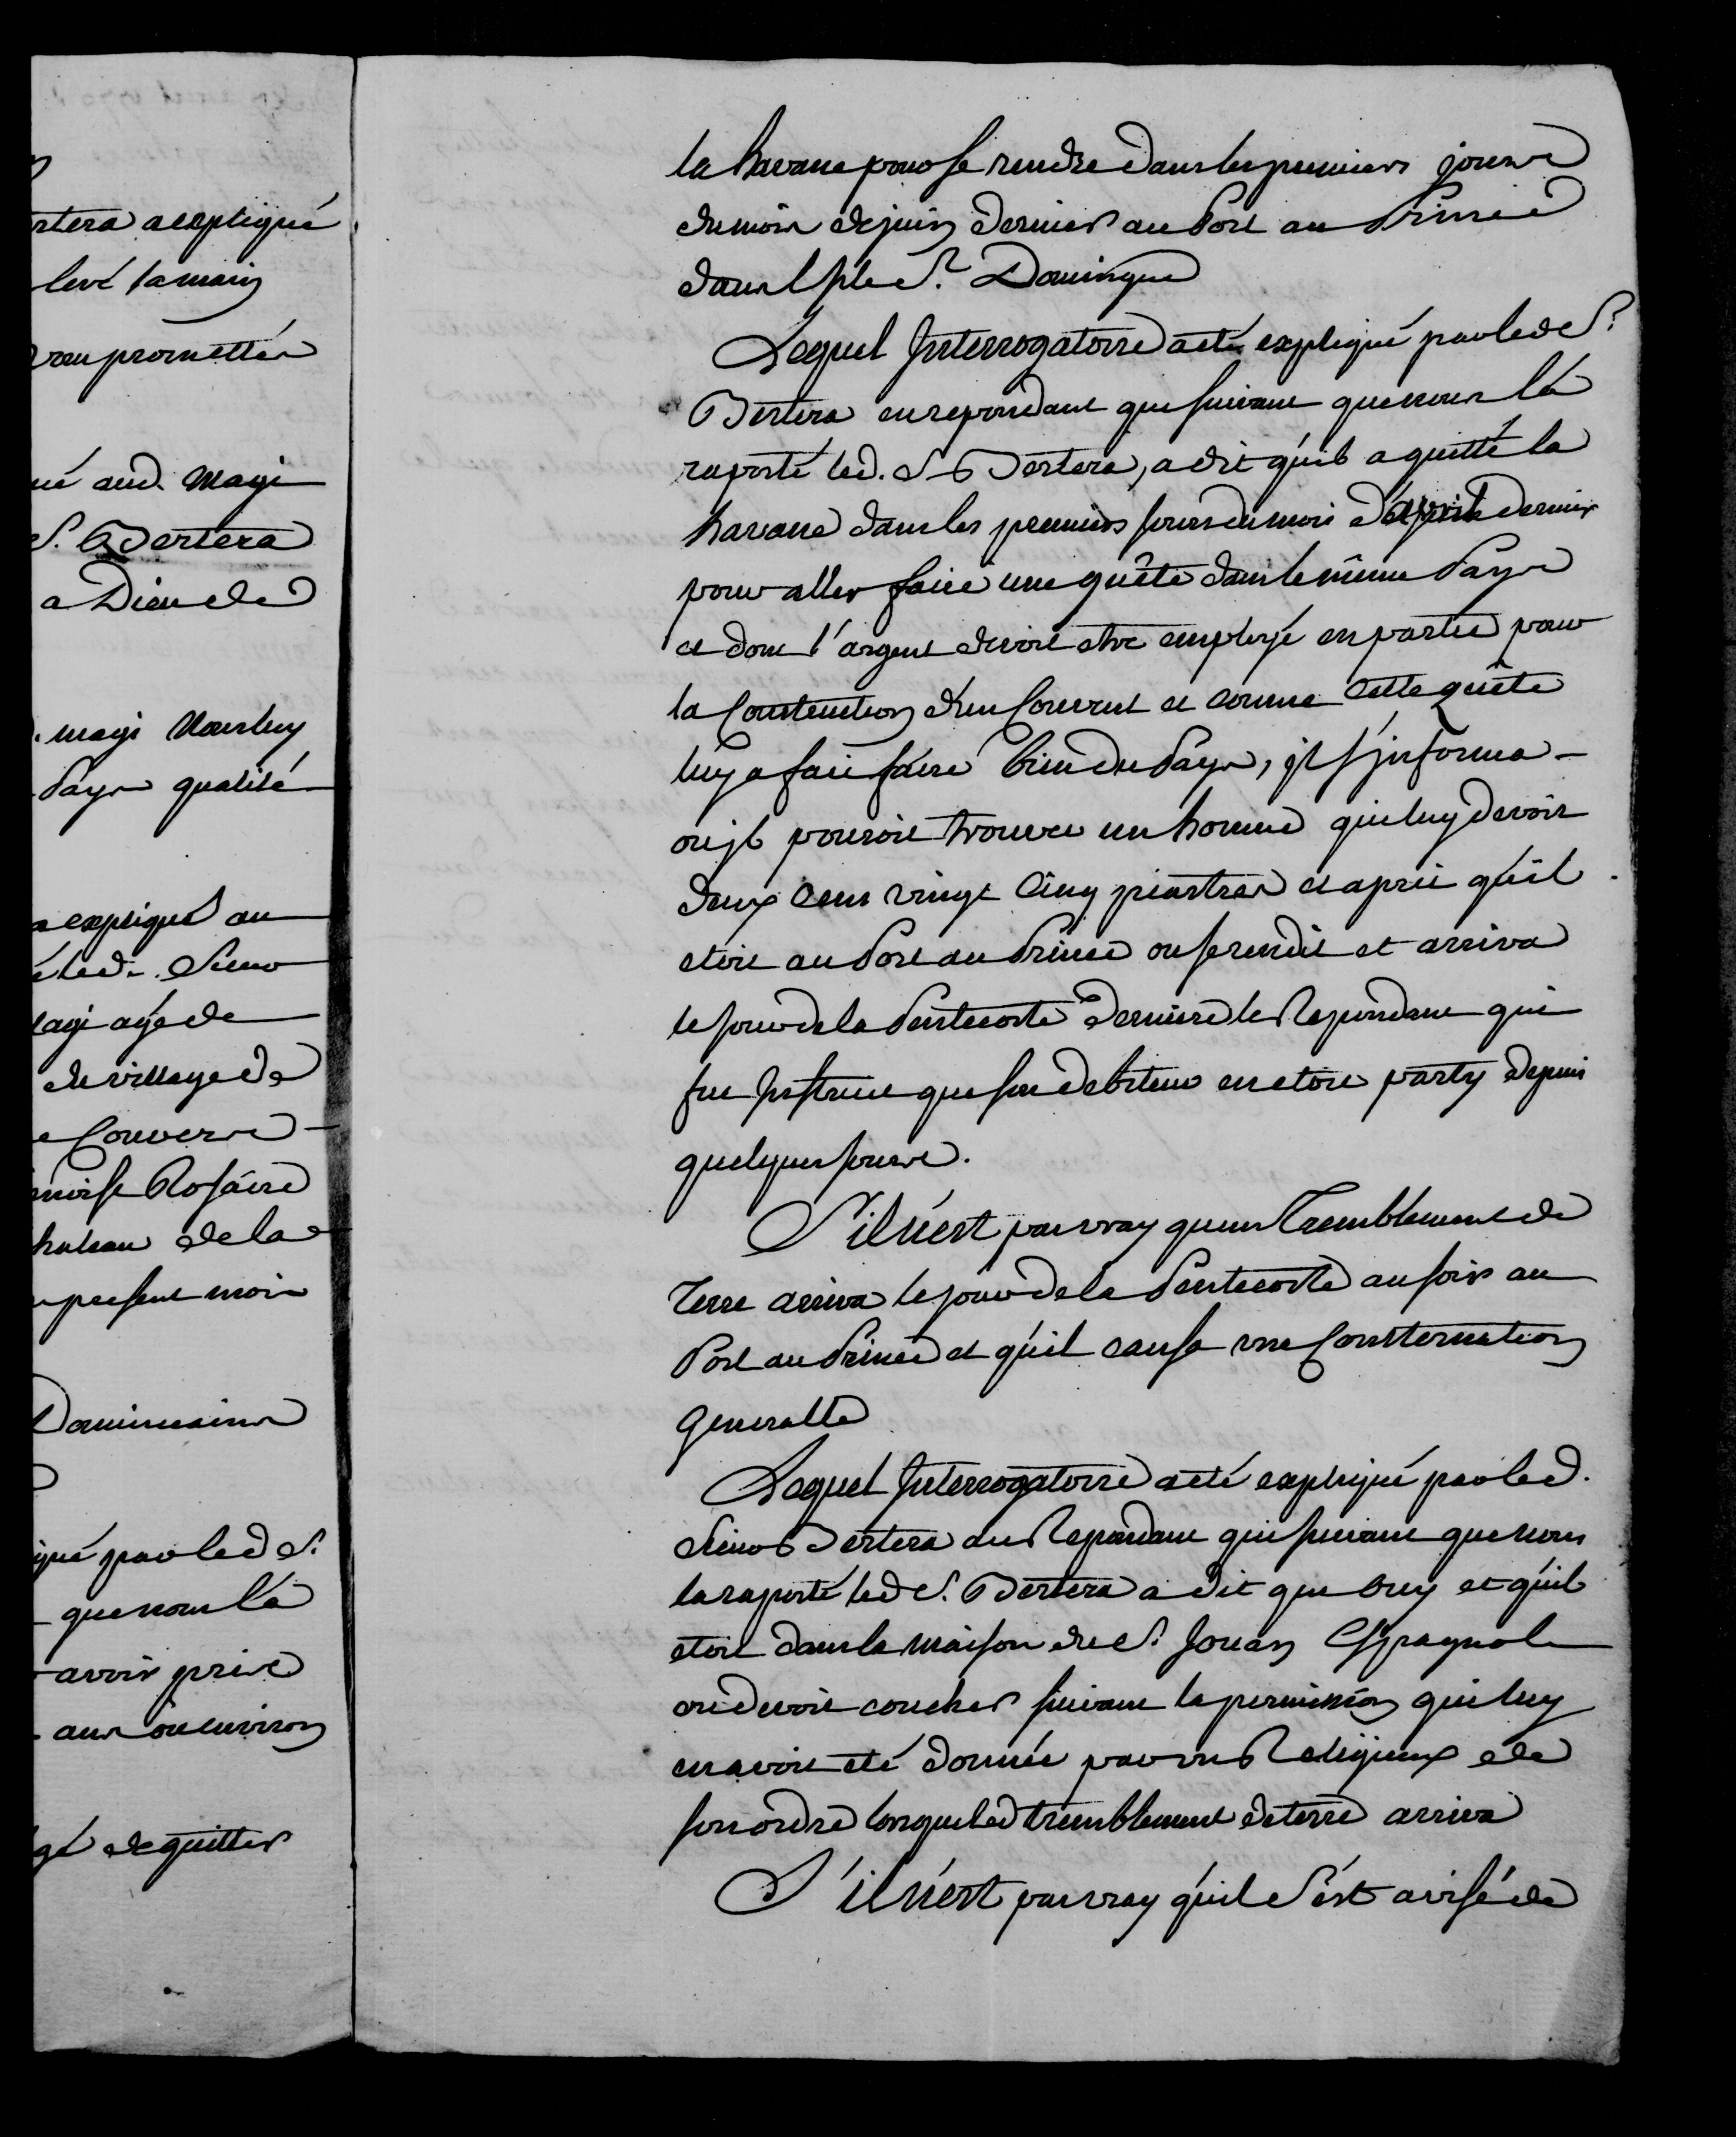 rtera a expliqué
levé la main
vous promettés
ué aud. Magi
S. Bertera
a Dieu de
magi Nous luy
Pays qualité
a expliqué au
é led. Sieur
agi agé de
du village de
Couvers
Rosaire
hateau de la
present mois
Dominicains
iqué par led S.
que nous l'a
avoir pris
ans ou environ
gé de quitter
la havane pour se rendre dans les premiers jours
du mois de juin dernier au Port au Prince
dans l'Isle S.t Domingue
Lequel Interrogatoire a eté expliqué par led S.r
Bertera en repondant que suivant que nous l'a
raporté led. S. Bertera, a dit qu'il a quitté la
havane dans les premiers jours du mois d'avril dernier
pour aller faire une quête dans le même Pays
et dont l'argent devoit etre employé en partie pour
la Construction d'un Couvent et comme Cette quête
luy a fait faire bien du Pays, il s'informa
ou il pouroit trouver un homme qui luy devoit
deux Cens vingt Cinq piastres et aprit qu'il
etoit au Port au Prince ou se rendit et arriva
le jour de la Pentecoste derniere le Repondant qui
fut Instruit que son debiteur en etoit party depuis
quelques jours.
S'il n'est pas vray qu'un Tremblement de
Terre arriva le jour de la Pentecoste au soir au
Port au Prince et qu'il causa une Consternation
Generalle
Lequel Interrogatoire a eté expliqué par led.
Sieur Bertera au Repondant qui suivant que nous
la raporté led S. Bertera a dit que ouy et qu'il
etoit dans la maison du S.r Jouan Espagnol
ou devoit coucher suivant la permission qui luy
en avoit eté donnée par un Religieux de
son ordre lorsque led tremblement de terre arriva
S'il n'est pas vray qu'il s'est avisé de